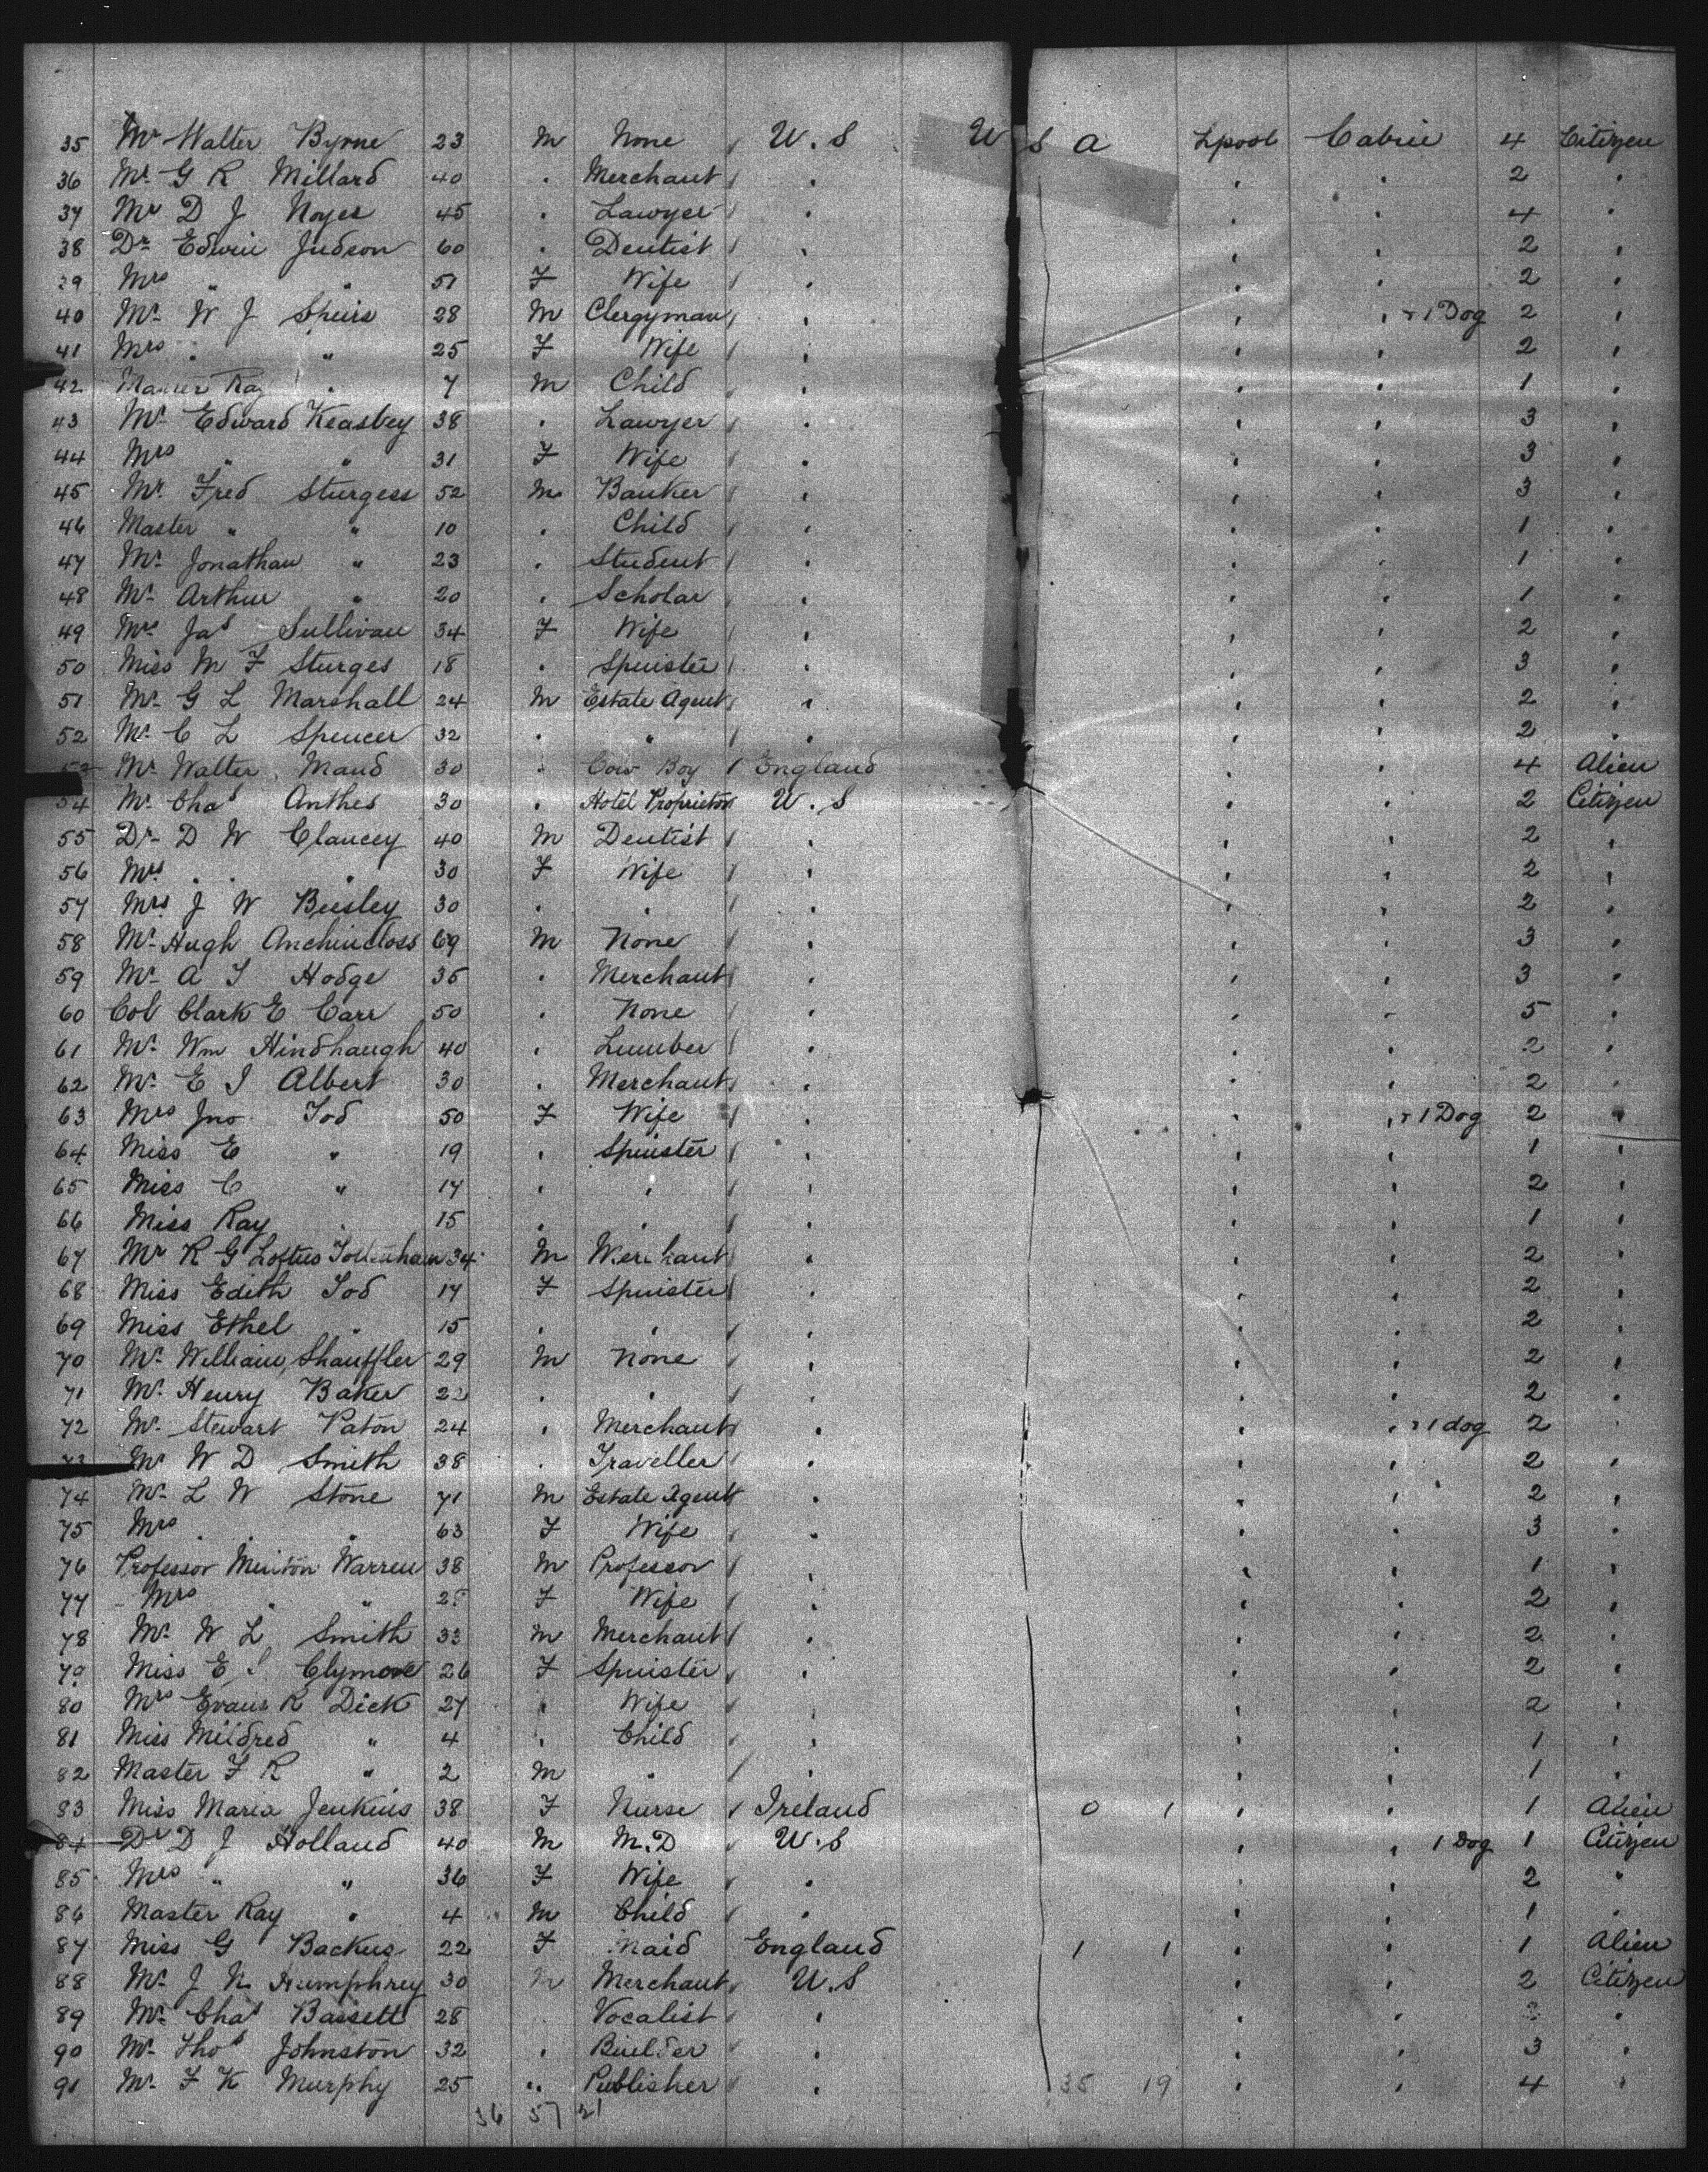 35 Mr Walter Byrne 23 M None / U.S U S A Lpool Cabin 4 Citizen
36 Mr G R Millard 40 " Merchant / " " " 2 "
37 Mr D J Noyes 45 " Lawyer / " " " 4 "
38 Dr Edwin Judson 60 " Dentist / " " " 2 "
39 Mrs " " 51 F Wife / " " " 2 "
40 Mr W J Speirs 28 M Clergyman / " " " & 1 Dog 2 "
41 Mrs " " 25 F Wife / " " " 2 "
42 Master Ray " 7 M Child / " " " 1 "
43 Mr Edward Keasbey 38 " Lawyer / " " " 3 "
44 Mrs " " 31 F Wife / " " " 3 "
45 Mr Fred Sturgess 52 M Banker / " " " 3 "
46 Master " " 10 " Child / " " " 1 "
47 Mr Jonathan " 23 " Student / " " " 1 "
48 Mr Arthur " 20 " Scholar / " " " 1 "
49 Mrs Jas Sullivan 34 F Wife / " " " 2 "
50 Miss M F Sturges 18 " Spinster / " " " 3 "
51 Mr G L Marshall 24 M Estate Agent / " " " 2 "
52 Mr C L Spencer 32 " " / " " " 2 "
53 Mr Walter Maud 30 " Cow Boy / England " " 4 Alien
54 Mr Chas Anthes 30 " Hotel Proprietor U.S " " 2 Citizen
55 Dr D W Clancey 40 M Dentist / " " " 2 "
56 Mrs " " " 30 F Wife / " " " 2 "
57 Mrs J W Beesley 30 " " / " " " 2 "
58 Mr Hugh Anchincloss 69 M None / " " " 3 "
59 Mr A I Hodge 35 " Merchant / " " " 3 "
60 Col Clark E Carr 50 " None / " " " 5 "
61 Mr Wm Hindhaugh 40 " Lumber / " " " 2 "
62 Mr E I Albert 30 " Merchant / " " " 2 "
63 Mrs Jno Tod 50 F Wife / " " " & 1 Dog 2 "
64 Miss E " 19 " Spinster / " " " 1 "
65 Miss C " 17 " " / " " " 2 "
66 Miss Ray " 15 " " / " " " 1 "
67 Mr R G Loftus Tottenham 34 M Merchant " " " 2 "
68 Miss Edith Tod 17 F Spinster / " " " 2 "
69 Miss Ethel " 15 " " / " " " 2 "
70 Mr William Shauffler 29 M None / " " " 2 "
71 Mr Henry Baker 22 " " / " " " 2 "
72 Mr Stewart Paton 24 " Merchant / " " " & 1 dog 2
73 Mr W D Smith 38 " Traveller / " " " 2 "
74 Mr L W Stone 71 M Estate Agent " " " 2 "
75 Mrs " " " 63 F Wife / " " " 3 "
76 Professor Minton Warren 38 M Professor / " " " 1 "
77 Mrs " " F Wife / " " " 2 "
78 Mr W L Smith 33 M Merchant / " " " 2 "
79 Miss E Clymore 26 F Spinster / " " " 2 "
80 Mrs Evans R Dick 27 " Wife / " " " 2 "
81 Miss Mildred " 4 " Child / " " " 1 "
82 Master F R " 2 M " / " " " 1 "
83 Miss Maria Jenkins 38 F Nurse / Ireland 0 1 " " 1 Alien
84 Dr D J Holland 40 M M.D / U.S " " 1 Dog 1 Citizen
85 Mrs " " 36 F Wife / " " " 2 "
86 Master Ray " 4 M Child / " " " 1 "
87 Miss G Backus 22 F Maid England 1 1 " " 1 Alien
88 Mr J N Humphrey 30 M Merchant / U.S " " 2 Citizen
89 Mr Chas Bassett 28 Vocalist / " " " "
90 Mr Thos Johnston 32 " Builder " " " 3 "
91 Mr F K Murphy 25 " Publisher / " 38 19 " " 4 "
36 57 21